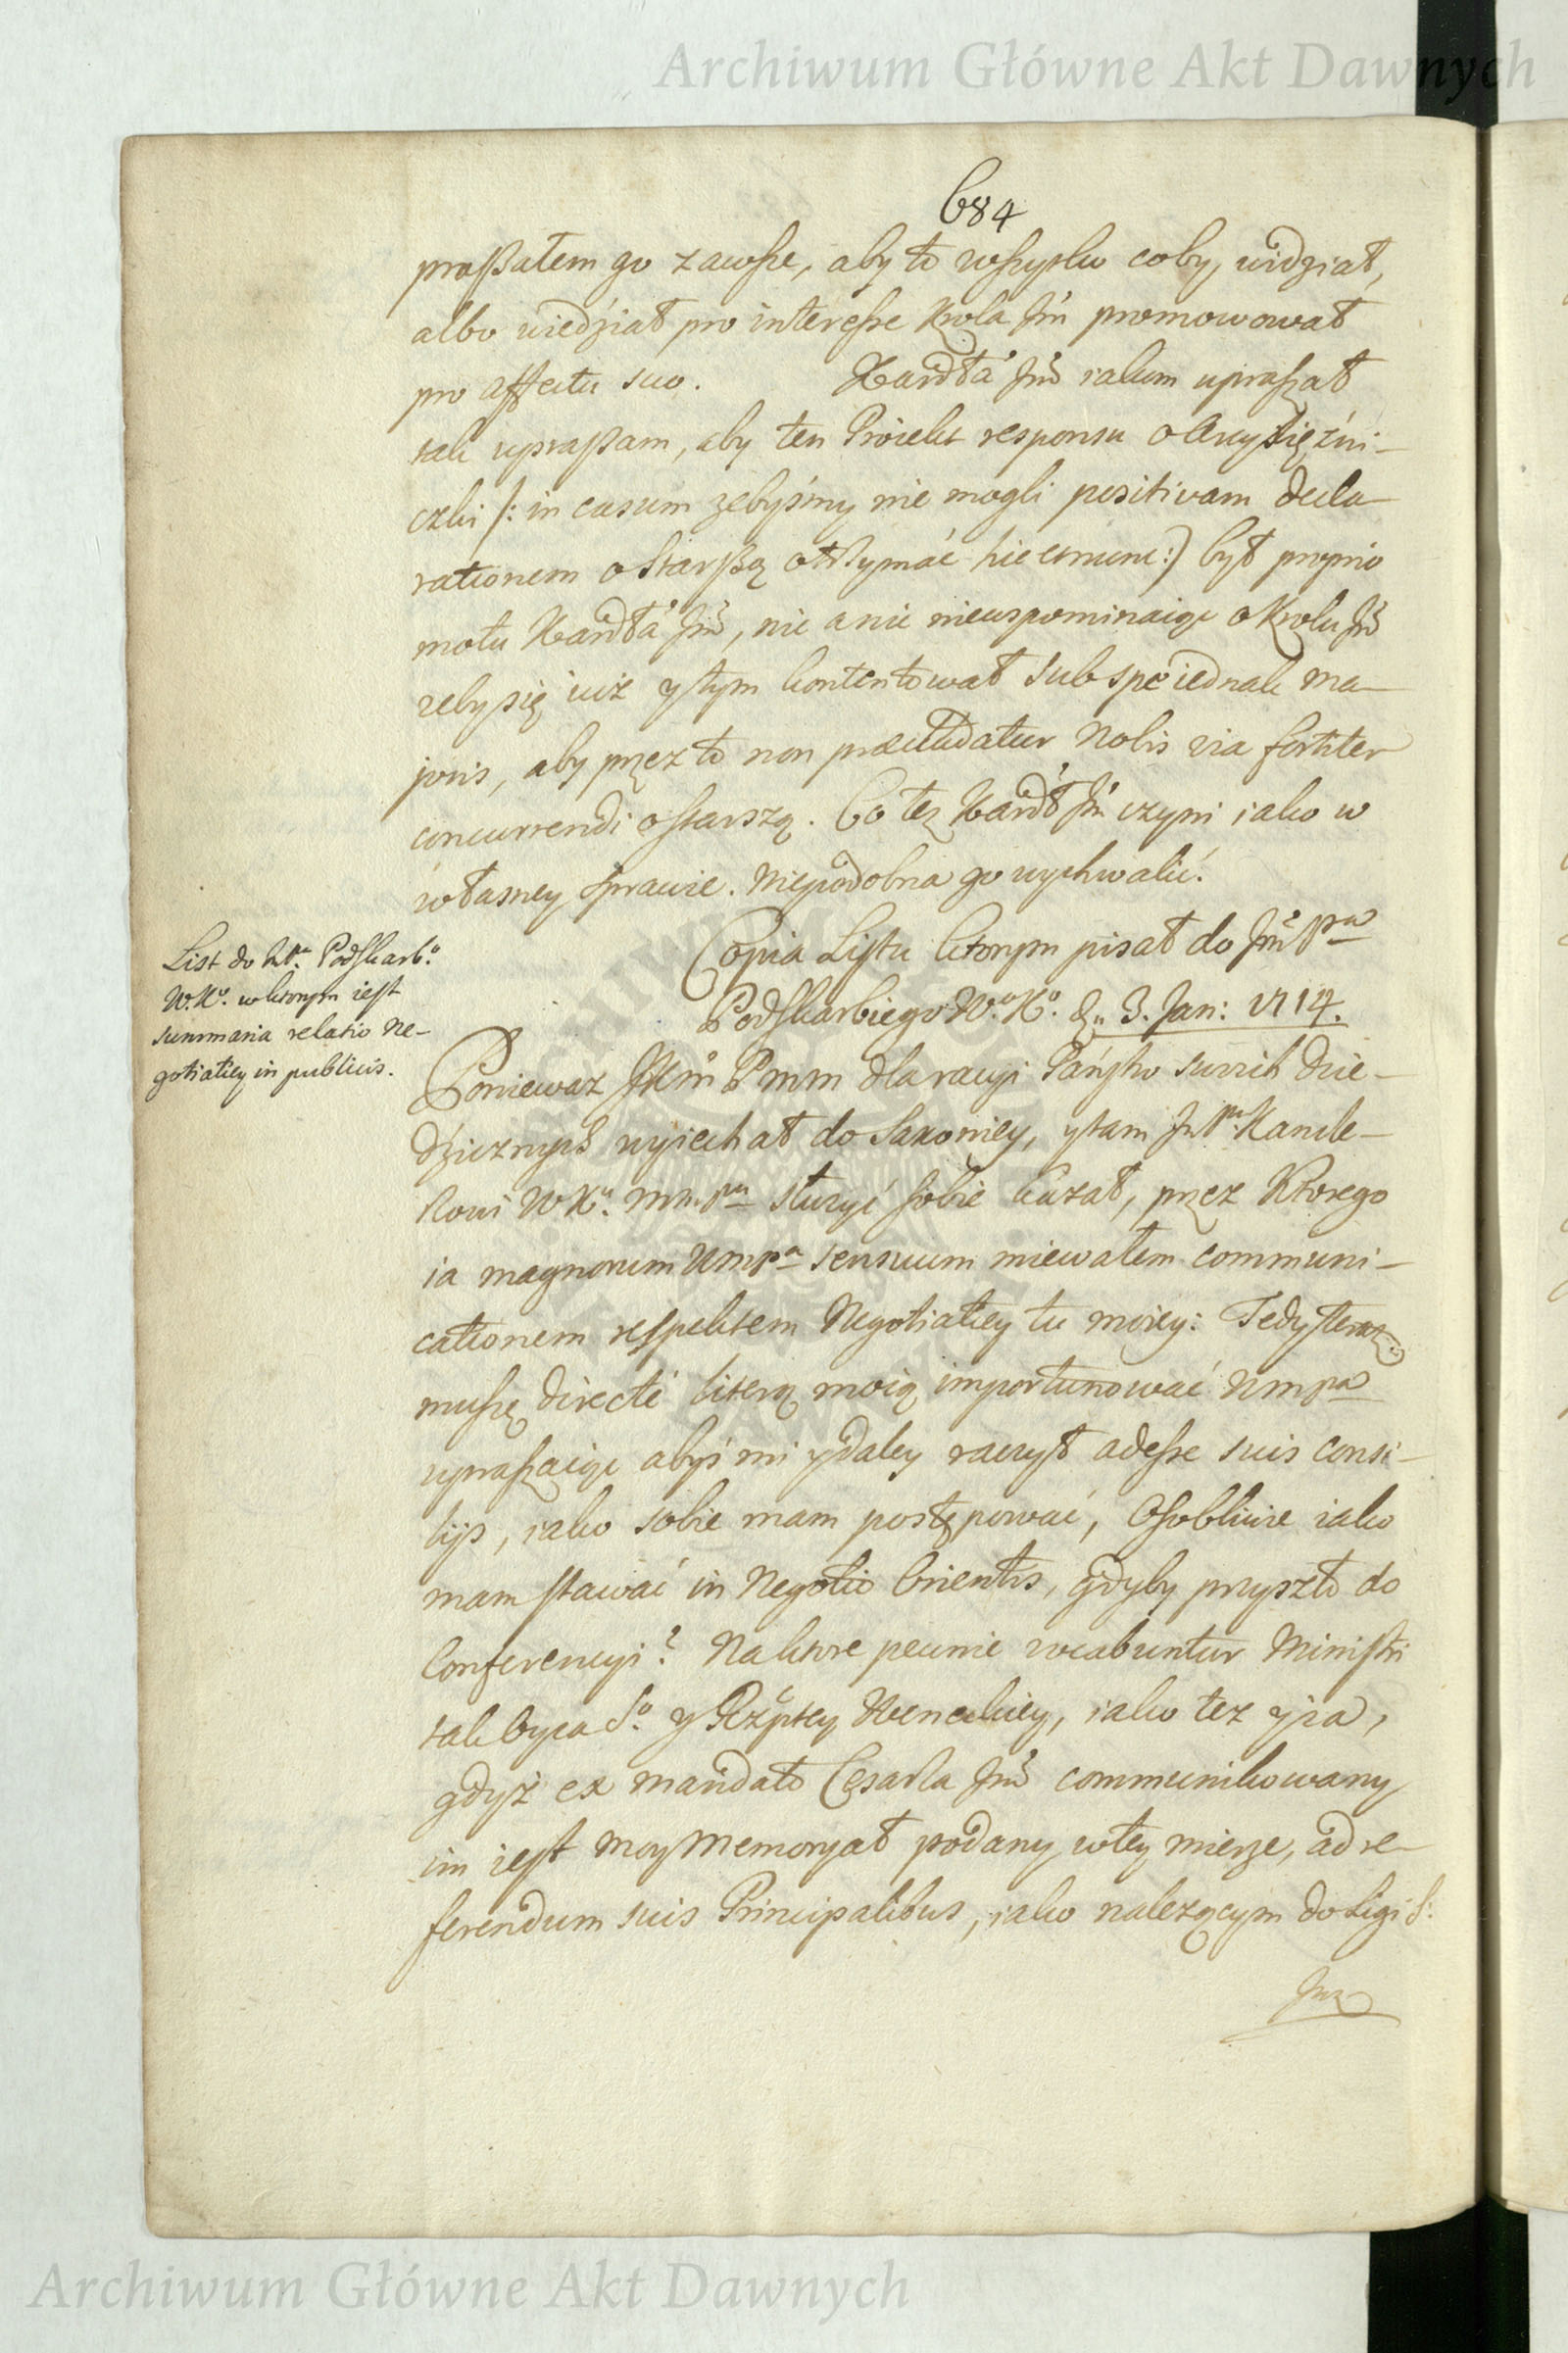 Archiwum Główne Akt Dawnych
684
praßałem go zawsze, aby to wszystko coby, widział,
albo wiedział pro interesse Krola Jm promowował
pro affectu suo. Kardła Jmć iakom upraszał
tak upraßam, aby ten Proiekt responsu o Arcyxiężni-
czki /: in casum zebyśmy nie mogli positivam decla-
rationem o Starßą otrzymać hic et nunc :) był proprio
motu Kardła Jmć, nic a nic niewspominaiąc o Krolu Jmć
zeby się iuż y tym kontentował sub spe iednak ma-
joris, aby przez to non præcludatur nobis via fortiter
concurrendi o starszą. Co tez Kardł Jm czyni iako w
własney sprawie. Niepodobna go wychwalić.
Copia Listu ktorym pisał do Jmć Pna
Podskarbiego W. Ko. d. 3. Jan: 1714.
List do Podskarbo.
W. Ko. w ktorym iest
summaria relatio Ne-
gotiatiey in publicis.
Poniewaz JKm P mm dla racyi Państw swoich dzie-
dzicznych wyiechał do Saxoniey, y tam Jm Pu Kancle-
rowi W Ku. mm. Pu służyć sobie kazał, przez ktorego
ia magnorum Wmpa sensuum miewałem communi-
cationem respektem Negotiatiey tu moiey: Tedy teraz
muszę directe literą moią importunować Wmpa
upraszaiąc abyś mi y daley raczył adesse suis consi-
lijs, iako sobie mam postępować, Osobliwie iako
mam stawać in Negotio Orientis, gdyby przyszło do
Conferencyi? Na ktore pewnie vocabuntur Ministri
tak Oyca So. y Rzptey Weneckiey, iako tez y ia,
gdyż ex mandato Cesarza Jmć communikowany
im iest moy Memoryał podany w tey mierze, ad re-
ferendum suis Principalibus, iako nalezącym do Ligi S:
Archiwum Główne Akt Dawnych